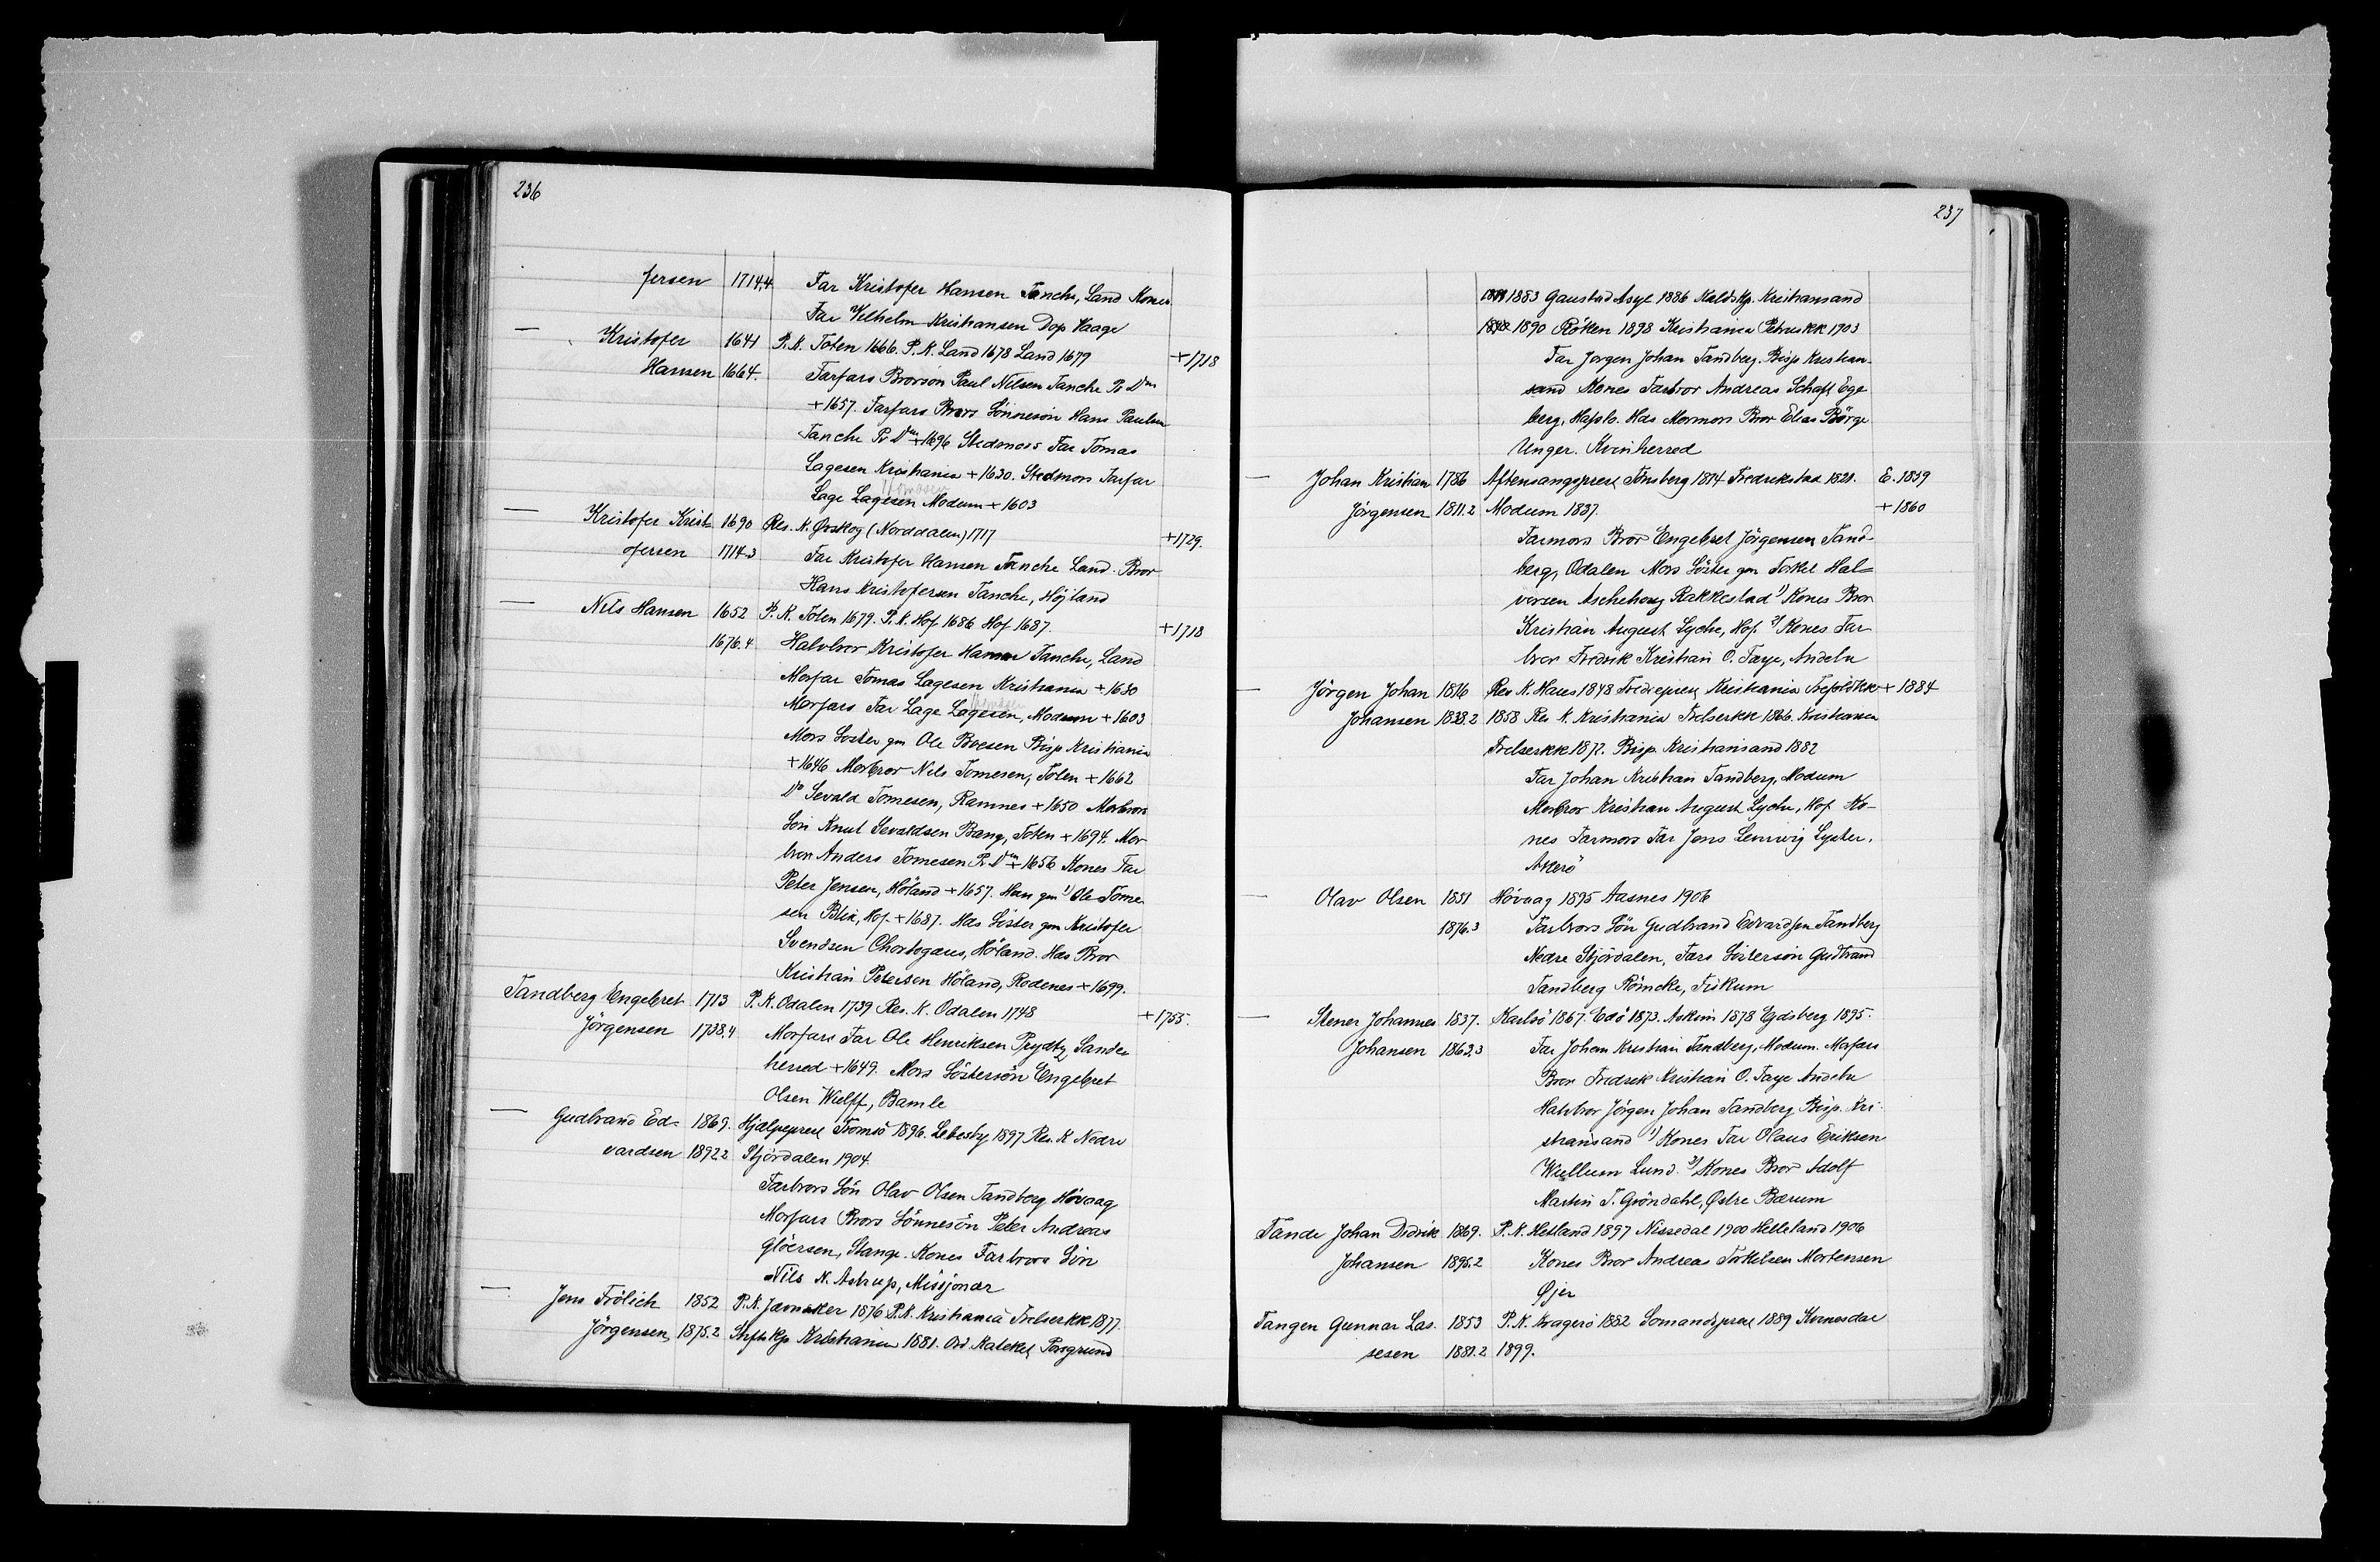 236
fersen 1714.4 Far Kristofer Hansen Tanche, Land Kones
Far Vilhelm Kristiansen Dop Vaage
— Kristofer 1641 P.K. Toten 1666. P.K. Land 1678 Land 1679 +1718
Hansen 1664. Farfars Brorsön Paul Nilsen Tanche Pr Dm
+1657. Farfars Brors Sönnesön Hans Paulsen
Tanche Pr Dm +1696 Stedmors Far Tomas
Lagesen Kristiania +1630. Stedmors Farfar
Lage Lagesen Modum +1603
— Kristofer Krist 1690 Res. K. Ørskog (Norddalen) 1717 +1729.
ofersen 1714.3 Far Kristofer Hansen Tanche Land. Bror
Hans Kristofersen Tanche, Höjland
— Nils Hansen 1652 P.K. Toten 1679. P.K. Hof 1686 Hof 1687. +1718
1676.4 Halvbror Kristofer Hansen Tanche, Land
Morfar Tomas Lagesen Kristiania +1630
Morfars Far Lage Lagesen, Modum +1603
Mors Söster gm Ole Boesen Bisp Kristiania
+1646 Morbror Nils Tomesen, Toten +1662
Do Sevald Tomesen, Ramnes +1650 Morbrors
Sön Knut Sevaldsen Bang, Toten +1694. Mor
bror Anders Tomesen Pr Dm +1656 Kones Far
Peter Jensen, Höland +1657. Han gm 1) Ole Tome
sen Blix, Hof +1687. Hds Söster gm Kristofer
Svendsen Hortogaus, Höland. Hds Bror
Kristian Petersen Höland, Rödenes +1699.
Tandberg Engebret 1713 P.K. Odalen 1739 Res. K. Odalen 1748 +1755.
Jörgensen 1738.4 Morfars Far Ole Henriksen Prydtz Sande
herred +1649. Mors Söstersön Engebret
Olsen Wulff, Bamle
— Gudbrand Ed- 1869. Hjælpeprest Tromsö 1896. Lebesby 1897 Res. K Nedre
vardsen 1892.2 Stjördalen 1904.
Farbrors Sön Olav Olsen Tandberg Hövaag
Morfars Brors Sönnesön Peter Andreas
Glöersen, Stange. Kones Farbrors Sön
Nils N. Astrup, Missjonær
— Jens Frölich 1852 P.K. Jævnaker 1876 P.K. Kristiania Frelserkk 1877
Jörgensen, 1875.2 Stiftskp Kristiania 1881. Ord. Katekel Porsgrund
237
1883 Gaustad Asyl 1886 Kaldskp. Kristiansand
1890 Röken 1898 Kristiania Petruskk 1903
Far Jörgen Johan Tandberg. Bisp Kristian-
sand Kones Farbror Andreas Schaft Ege
berg, Hafslo. Hds Mormors Bror Elias Börge
Unger. Kvinherred
— Johan Kristian 1786 Aftensangsprest Tönsberg 1814 Fredrikstad 1821. E. 1859
Jörgensen 1811.2 Modum 1837. +1860
Farmors Bror Engebret Jörgensen Tand-
berg, Odalen Mors Söster gm Torkel Hal=
vorsen Aschehoug Rakkestad 1) Kones Bror
Kristian August Lyche, Hof. 2) Kones Far
bror Fredrik Kristian O. Faye, Andebu
— Jörgen Johan 1816 Res K. Haus 1848 Tredjeprest Kristiania Trefoldkk +1884
Johansen 1838.2 1858 Res K. Kristiania Frelserkk 1866. Kristiania
Frelserkk 1872. Bisp. Kristiansand 1882
Far Johan Kristian Tandberg, Modum
Morbror Kristian August Lyche, Hof Ko-
nes Farmors Far Jens Lemvig Lyster.
Akerö
— Olav Olsen 1851 Hövaag 1895 Aasnes 1906
1876.3 Farbrors Sön Gudbrand Edvardsen Tandberg
Nedre Stjördalen, Fars Söstersön Gudbrand
Tandberg Römcke, Fiskum
— Stener Johannes 1837. Karlsö 1867. Edö 1873. Askim 1878 Eidsberg 1895.
Johansen 1863.3 Far Johan Kristian Tandberg, Modum. Mofars
Bror Fredrik Kristian O. Faye Andebu
Halvbror Jörgen Johan Tandberg Bisp. Kri-
stiansand 1) Kones Far Olaus Eriksen
Wullum Lund. 2) Kones Bror Adolf
Martin T. Gröndahl, Østre Bærum
Tande Johan Didrik 1869. P.K. Hetland 1897 Nissedal 1900 Helleland 1906
Johansen 1895.2 Kones Bror Andreas Torkelsen Mortensen
Øjer
Tangen Gunnar Las- 1853 P.K. Kragerö 1882 Sömandsprest 1889 Kvinesdal
sesen 1881.2 1899.